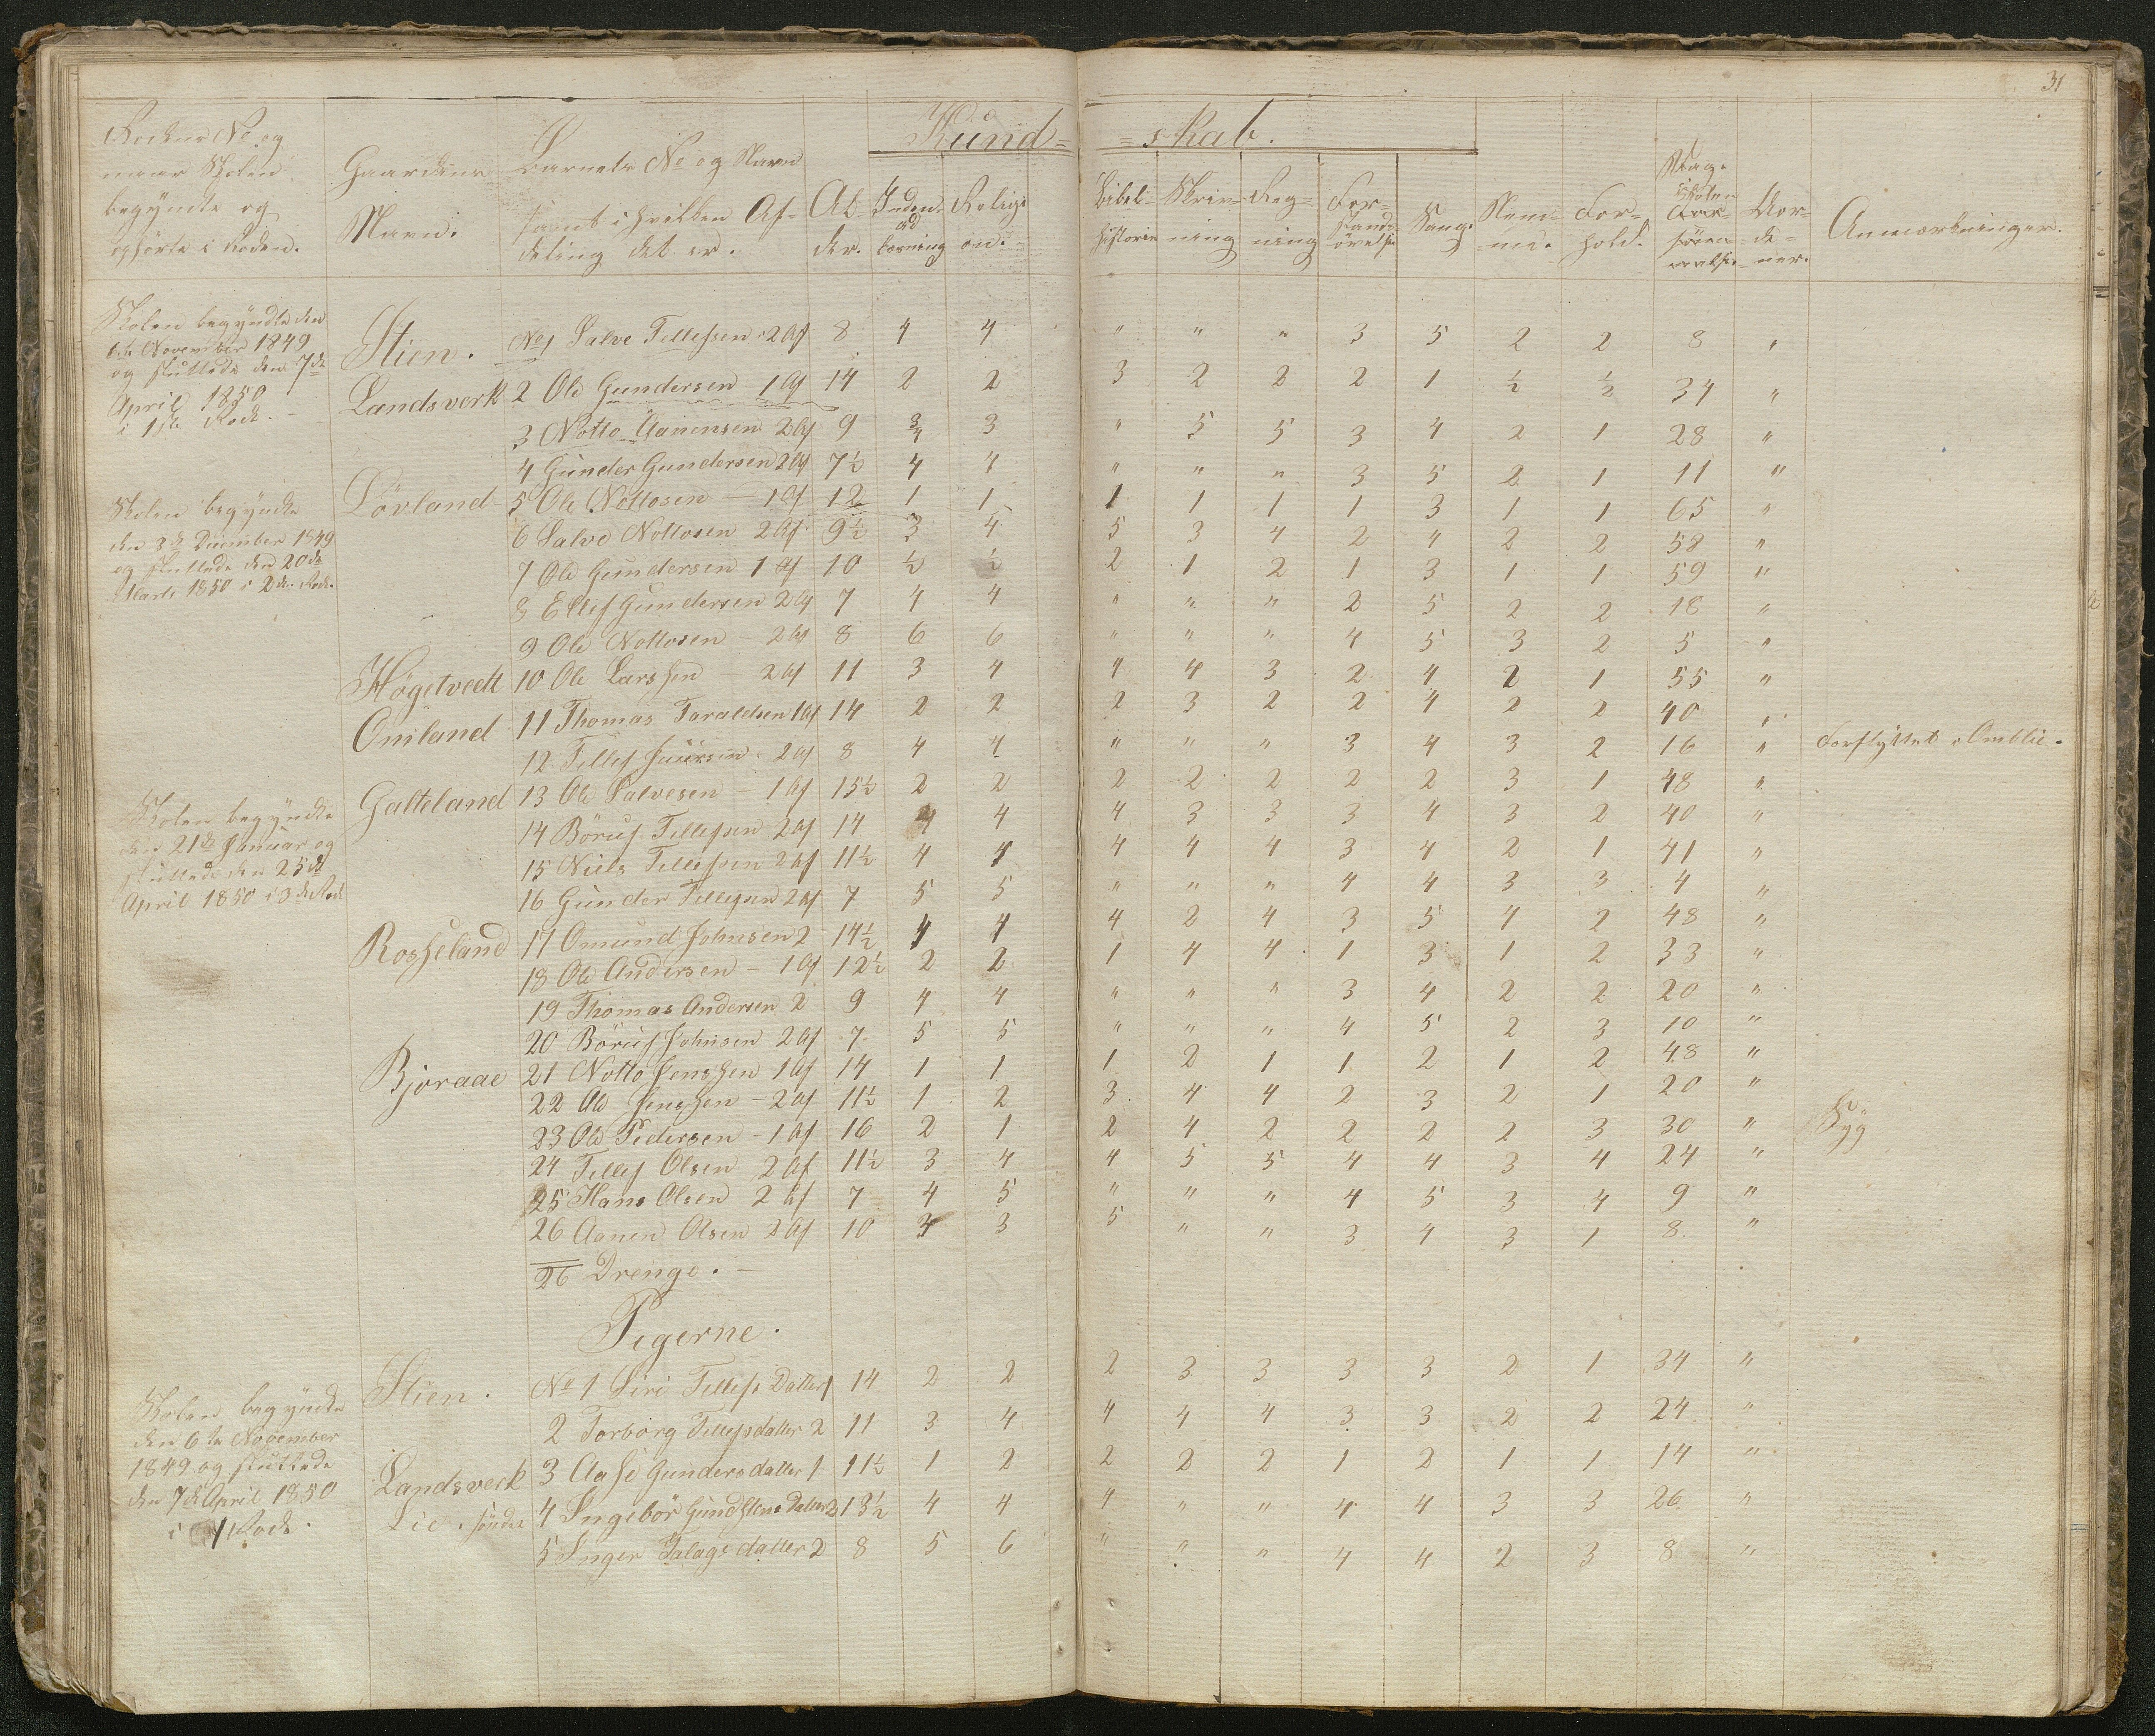 31
Kund= =skab.
Rodens No og
naar Skolen
begyndte og
ophörte i Roden.
Gaardens
Navn.
Barnets No og Navn
samt i hvilken Af-
deling det er.
Al-
der.
Inden-
ad
læsning
Religi
on.
Bibel-
historie
Skriv-
ning
Reg-
ning
For-
stands
övelse
Sang.
Nem-
me.
For-
hold.
Dage
Skolen
For-
söm-
melse.
Mor-
de-
ner.
Anmærkninger.
Skolen begyndte den
6te November 1849
og sluttede den 7de
April 1850
i 1ste Rode.
Stien. No 1 Salve Tellefsen 2 Af 8 4 4 " " " 3 5 2 2 8 "
Landsverk 2 Ole Gundersen 1 Af 14 2 2 3 2 2 2 1 ½ ½ 34 "
3 Notto Aanensen 2 Af 9 3/4 3 " 5 5 3 4 2 1 28 "
4 Gunder Gundersen 2 Af 7½ 4 4 " " " 3 5 2 1 11 "
Lövland 5 Ole Nottosen - 1 Af 12 1 1 1 1 1 1 3 1 1 65 "
6 Salve Nottosen 2 Af 9½ 3 4 5 3 4 2 4 2 2 58 "
7 Ole Gundersen 1 Af 10 ½ ½ 2 1 2 1 3 1 1 59 "
8 Ellef Gundersen 2 Af 7 4 4 " " " 2 5 2 2 18 "
9 Ole Nottosen - 2 Af 8 6 6 " " " 4 5 3 2 5 "
Skolen begyndte
den 3de December 1849
og sluttede den 20de
Marts 1850 i 2de Rode.
Høgetvedt 10 Ole Larssen - 2 Af 11 3 4 4 4 3 2 4 2 1 55 "
Omland 11 Thomas Taraldsen 1 Af 14 2 2 2 3 2 2 4 2 2 40 "
12 Tellef 2 Af 8 4 4 " " " 3 4 3 2 16 " Forflyttet i Omblie.
Galteland 13 Ole Salvesen - 1 Af 15½ 2 2 2 2 2 2 2 3 1 48 "
14 Böruf Tellefsen 2 Af 14 4 4 4 3 3 3 4 3 2 40 "
15 Niels Tellefsen 2 Af 11½ 4 4 4 4 4 3 4 2 1 41 "
16 Gunder Tellefsen 2 Af 7 5 5 " " " 4 4 3 3 4 "
Skolen begyndte
den 21de Januar og
sluttede den 25de
April 1850 i 3de Rode
Rosseland 17 Omund Johnsen 2 14½ 4 4 4 2 4 3 5 4 2 48 "
18 Ole Andersen - 1 Af 12½ 2 2 1 4 4 1 3 1 2 33 "
19 Thomas Andersen 2 9 4 4 " " " 3 4 2 2 20 "
20 Böruf Johnsen 2 Af 7 5 5 " " " 4 5 2 3 10 "
Bjoraae 21 Notto Jenssen 1 Af 14 1 1 1 2 1 1 2 1 2 48 "
22 Ole Jenssen - 2 Af 11½ 1 2 3 4 4 2 3 2 1 20 "
23 Ole Pedersen - 1 Af 16 2 1 2 4 2 2 2 2 3 30 " Syg
24 Tellef Olsen 2 Af 11½ 3 4 4 5 5 4 4 3 4 24 "
25 Hans Olsen 2 Af 7 4 5 " " " 4 5 3 4 9 "
26 Aanen Olsen 2 Af 10 3 3 5 " " 3 4 3 1 8 "
26 Drenge. -
Pigerne.
Stien. No 1 Siri Tellefs Datter 1 14 2 2 2 3 3 3 3 2 1 34 "
2 Torborg Tellefsdatter 2 11 3 4 4 4 4 3 3 2 2 24 "
Landsverk 3 Aase Gundersdatter 1 11½ 1 2 2 2 2 1 2 1 1 14 "
Lie. söndre 4 Ingebor Datter 2 13½ 4 4 4 " " 4 4 3 3 26 "
5 Inger datter 2 8 5 6 " " " 4 4 2 3 8 "
Skolen begyndte
den 6te November
1849 og sluttede
den 7de April 1850
i 1 Rode.